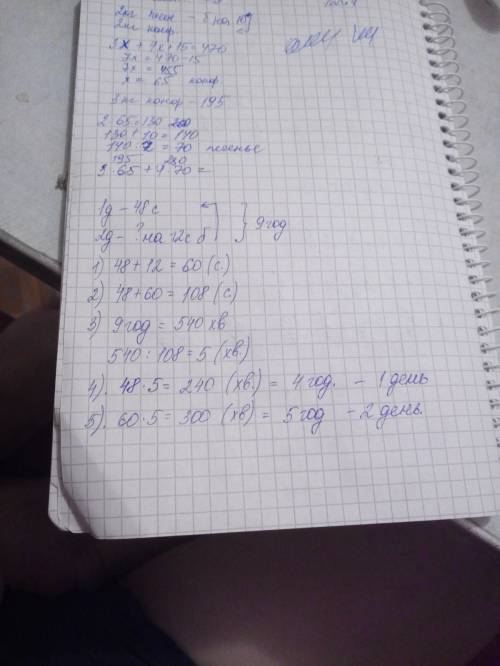 2кг
2кг конф.
3x + 4x + 15 = 470
7x = 470 - 15
7x = 455
x = 65 конф.
3кг конф - 195
2 · 65 = 130
130 + 10 = 140
140 : 2 = 70 печенье
195 280
3 · 65 + 4 · 70 =
1д - 48 с
2д - ? на 12с б } 9 год
1) 48 + 12 = 60 (с.)
2) 48 + 60 = 108 (с)
3) 9 год = 540 хв
540 : 108 = 5 (хв.)
4). 48 · 5 = 240 (хв.) = 4 год. - 1 день
5). 60 · 5 = 300 (хв) = 5 год - 2 день.